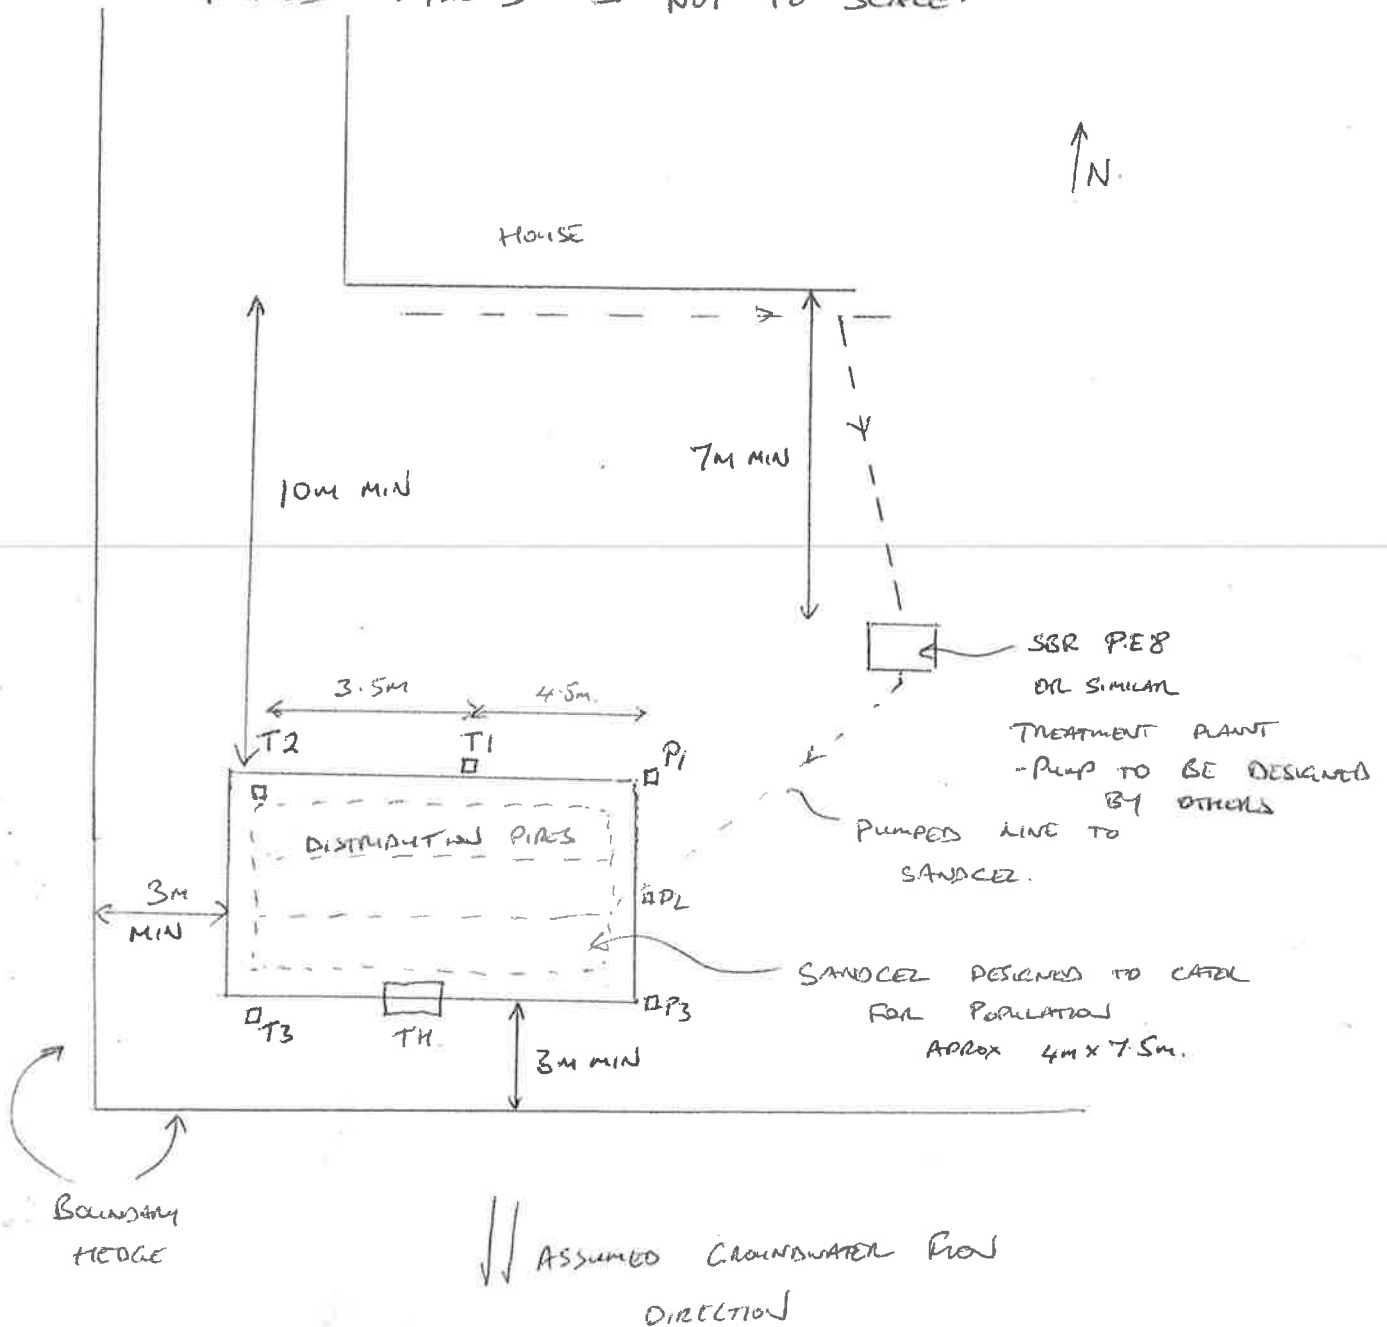 NOT TO SCALE.
N.
HOUSE
10M MIN
7M MIN
SBR P.E 8
OR SIMILAR
TREATMENT PLANT
- PUMP TO BE DESIGNED
BY OTHERS
3.5M
4.5M.
T2
T1
P1
DISTRIBUTION PIPES
PUMPED LINE TO
SANDCEL.
3M
MIN
P2
SANDCEL DESIGNED TO CATER
FOR POPULATION
APROX 4M X 7.5M.
T3
TH.
P3
3M MIN
BOUNDARY
HEDGE
ASSUMED GROUNDWATER FLOW
DIRECTION